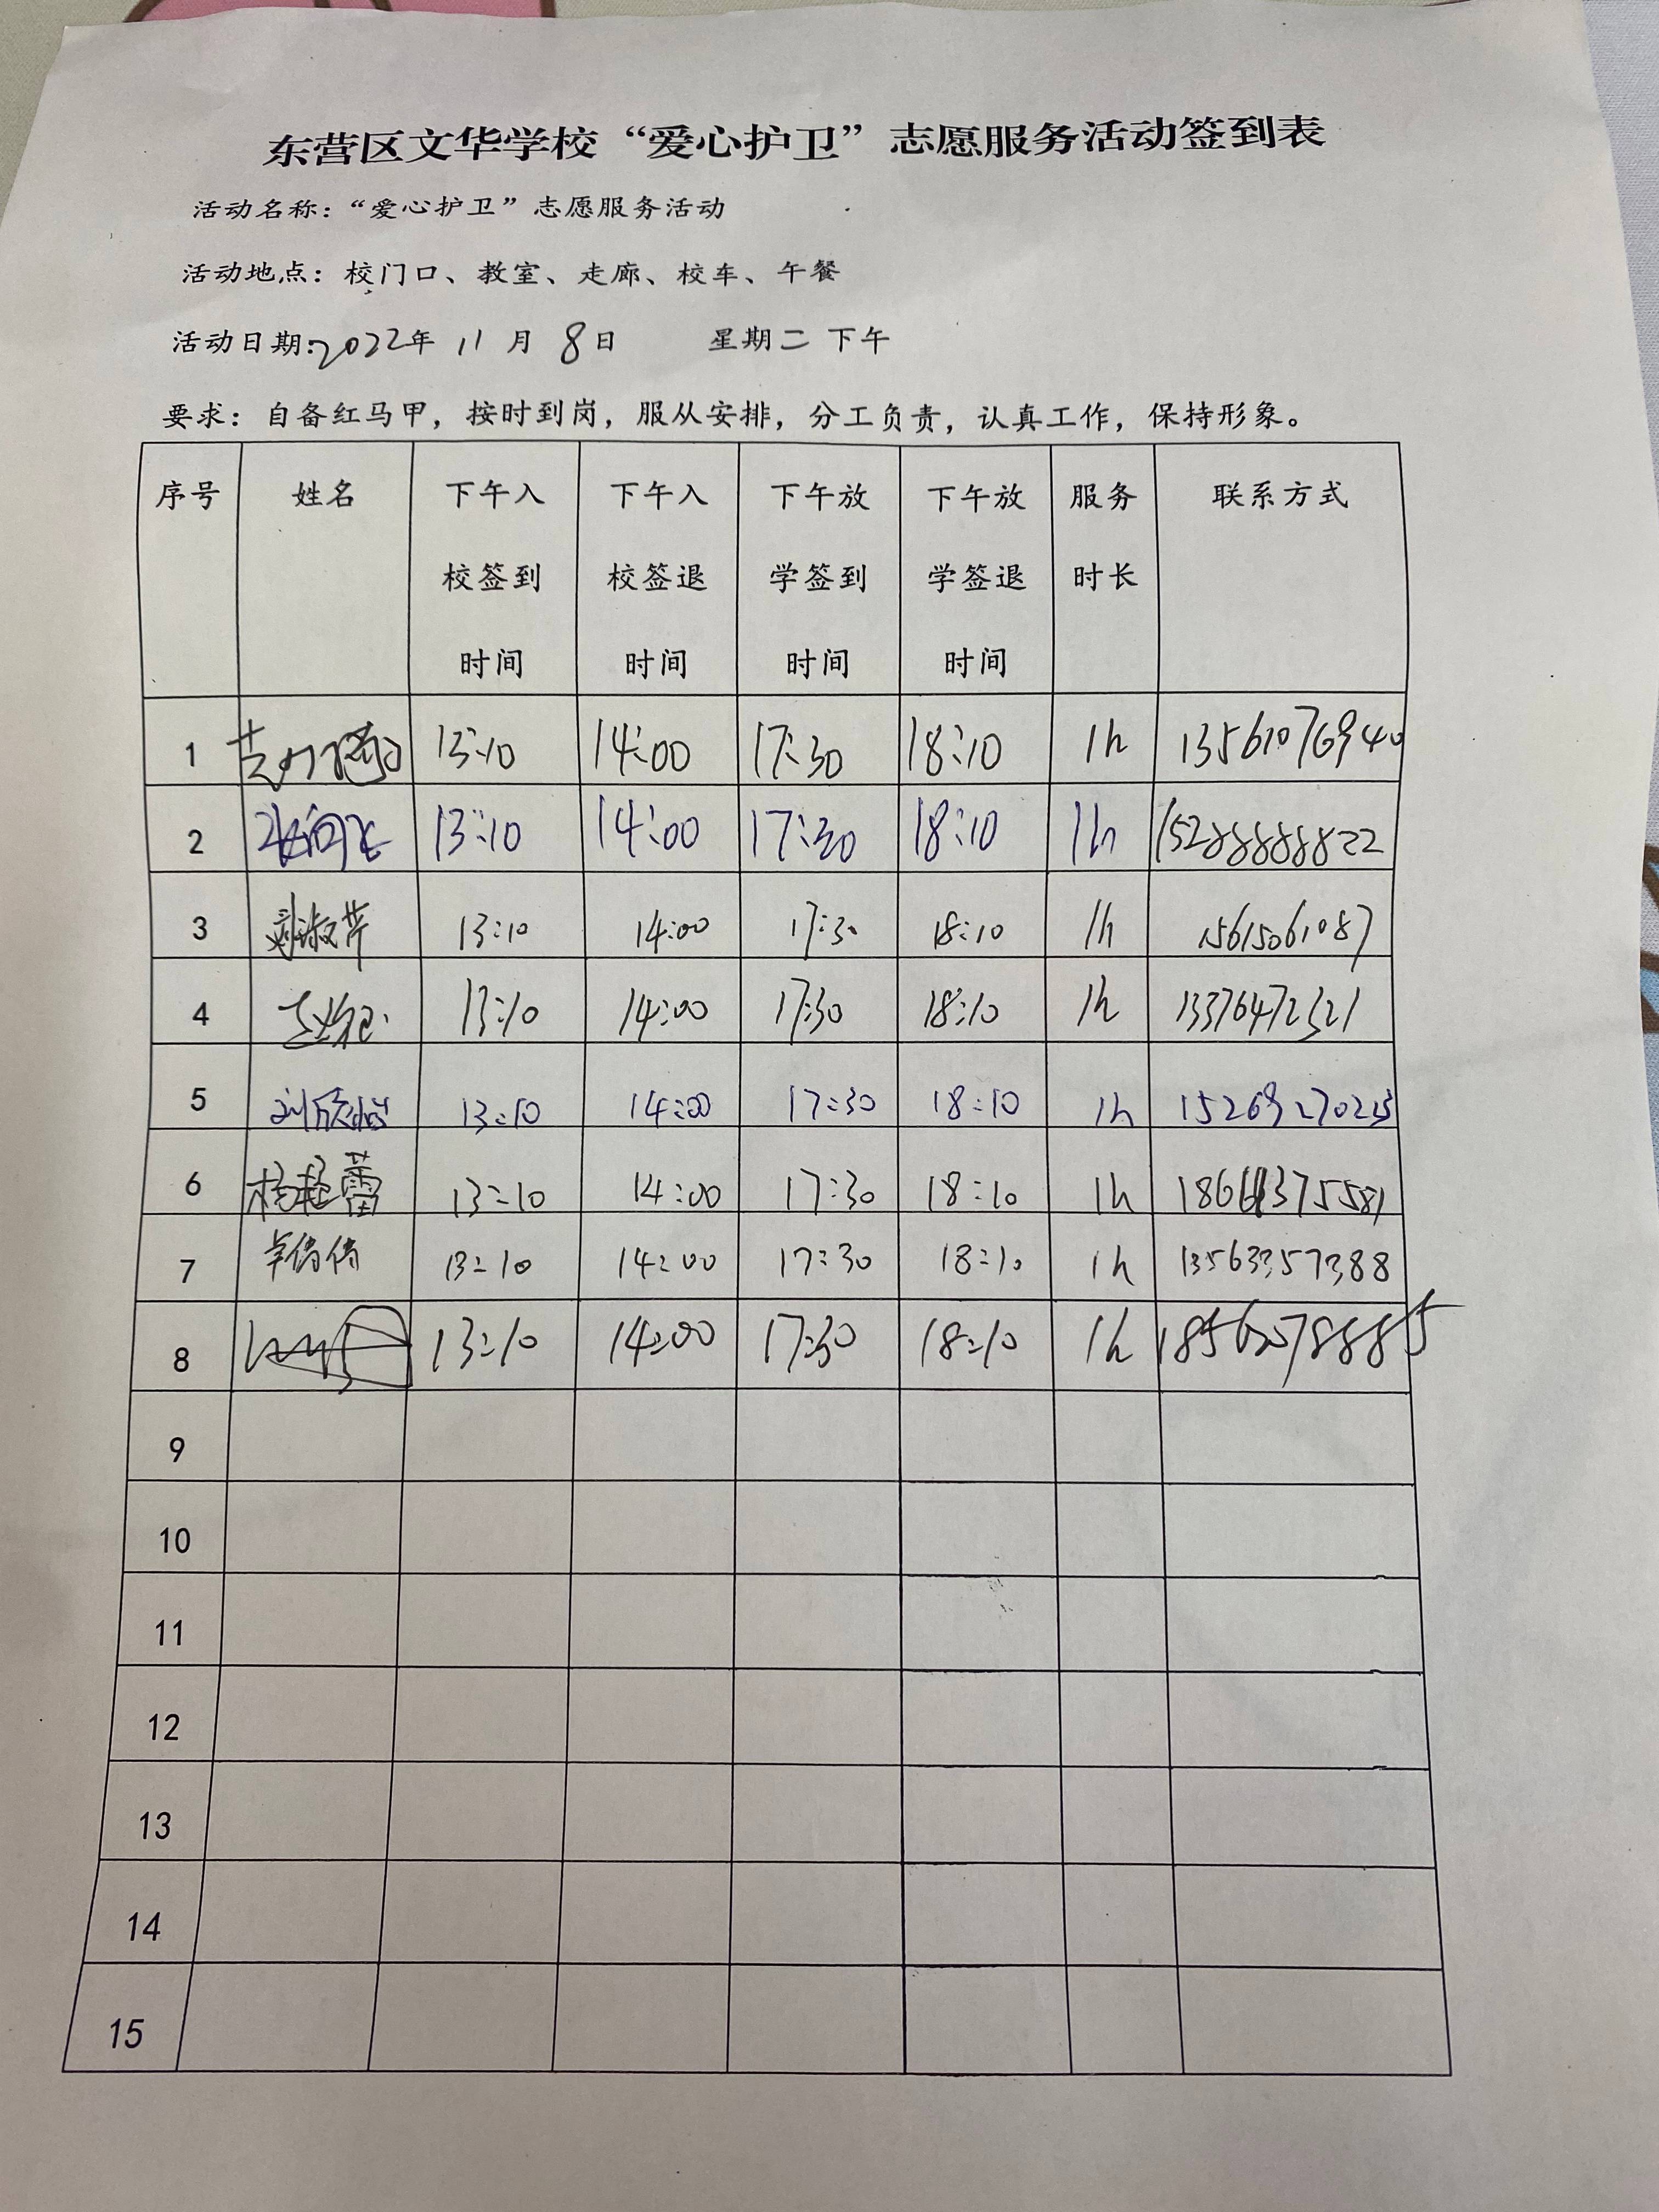 东营区文华学校“爱心护卫”志愿服务活动签到表
活动名称：“爱心护卫”志愿服务活动
活动地点：校门口、教室、走廊、校车、午餐
活动日期:2022年 11 月 8日 星期二 下午
要求：自备红马甲，按时到岗，服从安排，分工负责，认真工作，保持形象。
序号 姓名 下午入校签到时间 下午入校签退时间 下午放学签到时间 下午放学签退时间 服务时长 联系方式
1 13:10 14:00 17:30 18:10 1h 13561076940
2 13:10 14:00 17:30 18:10 1h 15288888822
3 13:10 14:00 17:30 18:10 1h 15615061087
4 13:10 14:00 17:30 18:10 1h 13376472321
5 13:10 14:00 17:30 18:10 1h
6 13:10 14:00 17:30 18:10 1h
7 卓倩倩 13:10 14:00 17:30 18:10 1h 13563357388
8 13:10 14:00 17:30 18:10 1h
9
10
11
12
13
14
15